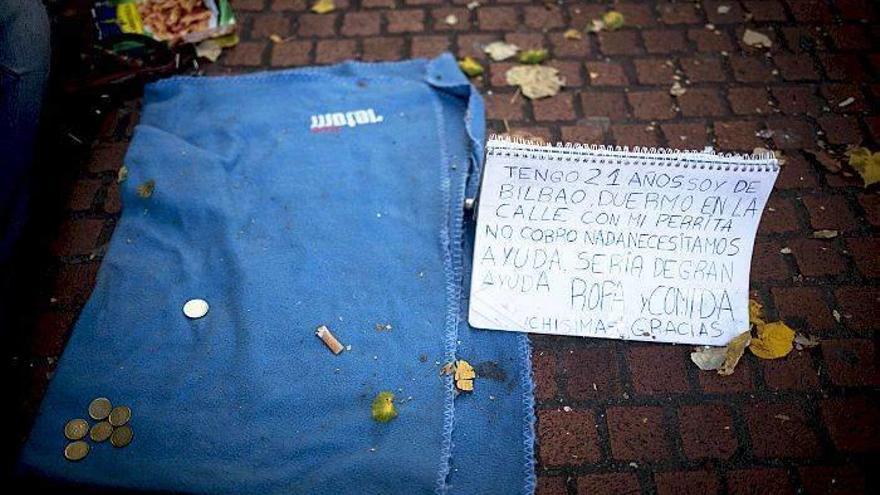 TENGO 21 AÑOS SOY DE
BILBAO, DUERMO EN LA
CALLE CON MI PERRITA
NO COBRO NADA NECESITAMOS
AYUDA. SERÍA DE GRAN
AYUDA ROPA Y COMIDA
CHISIMA GRACIAS